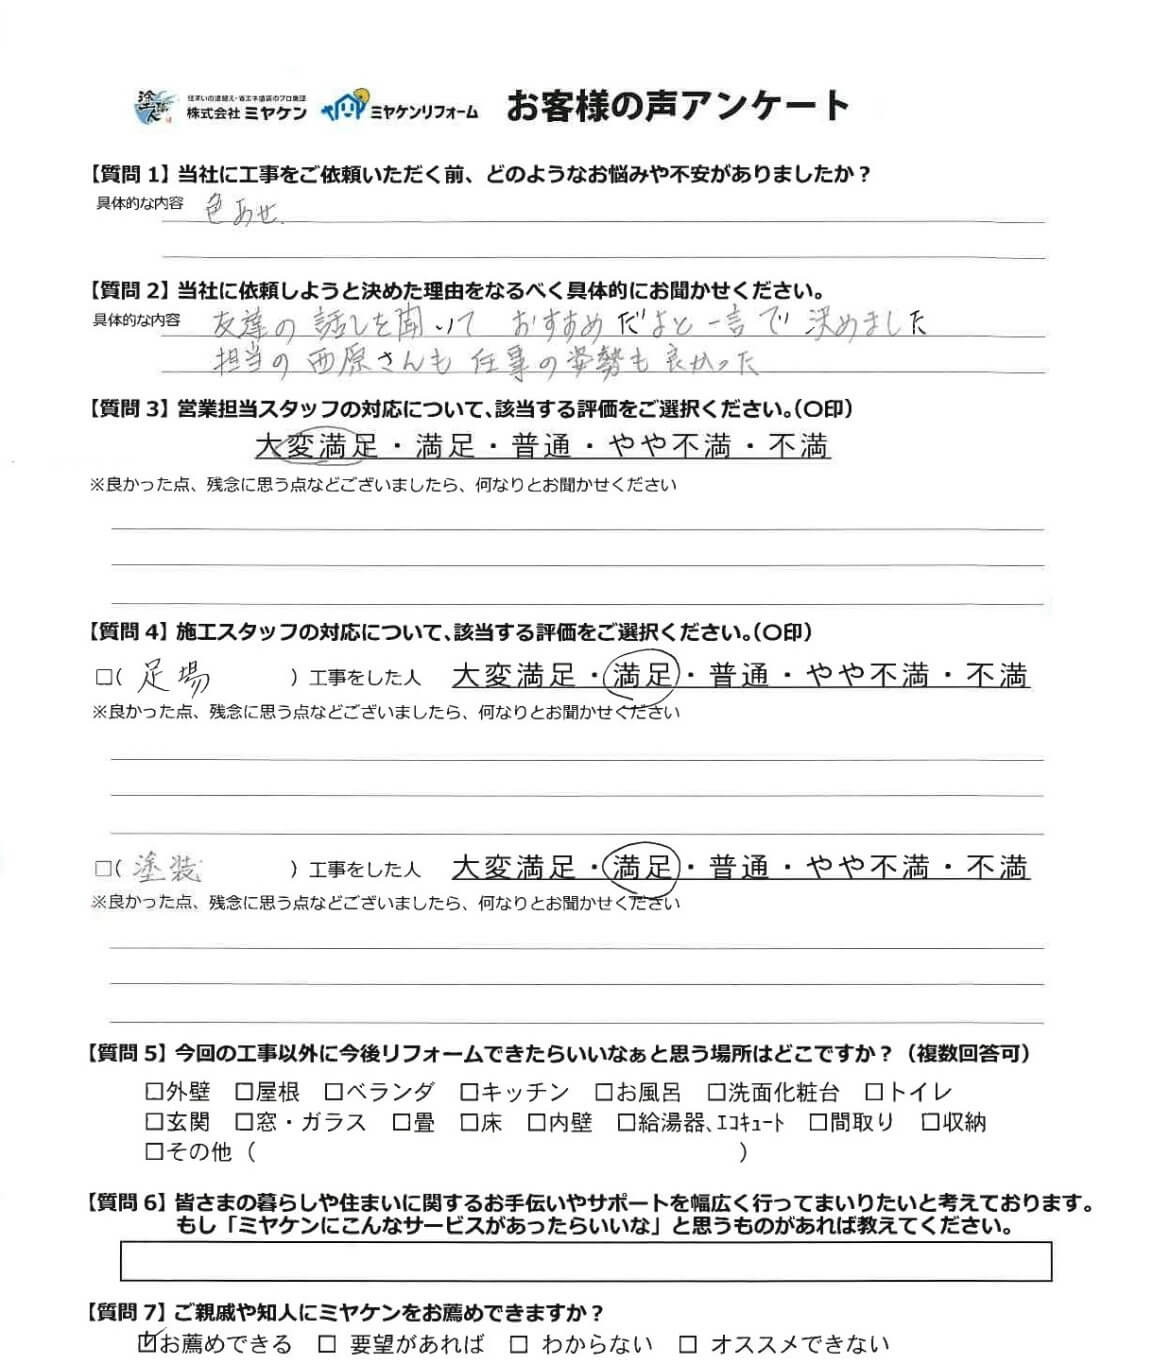 住まいの塗替え・省エネ塗装のプロ集団
株式会社 ミヤケン ミヤケンリフォーム お客様の声アンケート
【質問 1】当社に工事をご依頼いただく前、どのようなお悩みや不安がありましたか？
具体的な内容 色あせ.
【質問 2】当社に依頼しようと決めた理由をなるべく具体的にお聞かせください。
具体的な内容 友達の話しを聞いて おすすめだよと一言で決めました
担当の西原さんも仕事の姿勢も良かった
【質問 3】営業担当スタッフの対応について、該当する評価をご選択ください。（〇印）
大変満足・満足・普通・やや不満・不満
※良かった点、残念に思う点などございましたら、何なりとお聞かせください
【質問 4】施工スタッフの対応について、該当する評価をご選択ください。（〇印）
□（ 足場 ）工事をした人 大変満足・満足・普通・やや不満・不満
※良かった点、残念に思う点などございましたら、何なりとお聞かせください
□（ 塗装 ）工事をした人 大変満足・満足・普通・やや不満・不満
※良かった点、残念に思う点などございましたら、何なりとお聞かせください
【質問 5】今回の工事以外に今後リフォームできたらいいなぁと思う場所はどこですか？（複数回答可）
□外壁 □屋根 □ベランダ □キッチン □お風呂 □洗面化粧台 □トイレ
□玄関 □窓・ガラス □畳 □床 □内壁 □給湯器、ｴｺｷｭｰﾄ □間取り □収納
□その他（ ）
【質問 6】皆さまの暮らしや住まいに関するお手伝いやサポートを幅広く行ってまいりたいと考えております。
もし「ミヤケンにこんなサービスがあったらいいな」と思うものがあれば教えてください。
【質問 7】ご親戚や知人にミヤケンをお薦めできますか？
☑お薦めできる □ 要望があれば □ わからない □ オススメできない